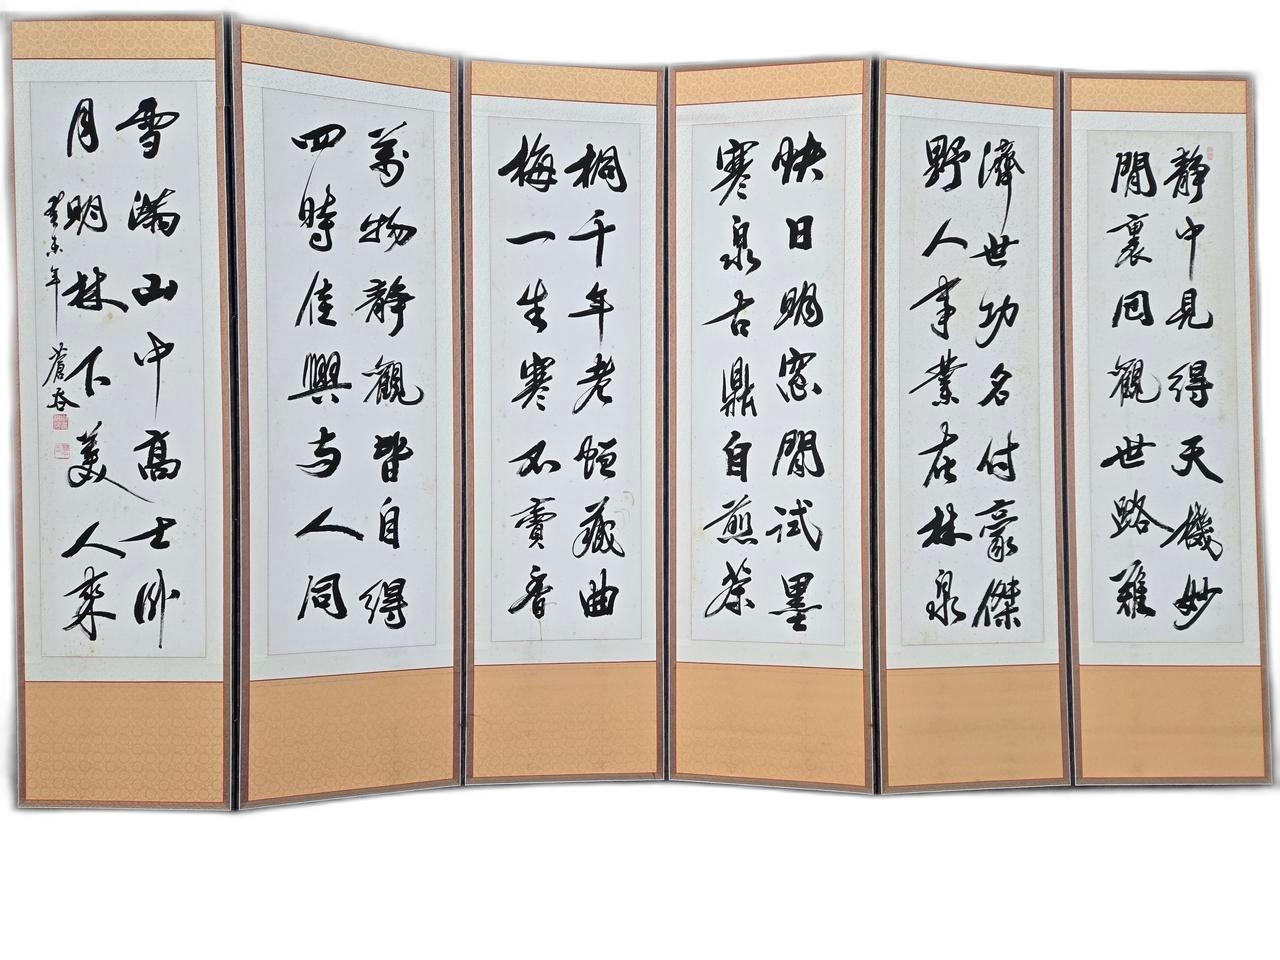 靜中見得天機妙
閒裏回觀世路難
濟世功名付豪傑
野人事業在林泉
快日明窓閒試墨
寒泉古鼎自煎茶
桐千年老恒藏曲
梅一生寒不賣香
萬物靜觀皆自得
四時佳興與人同
雪滿山中高士臥
月明林下美人來